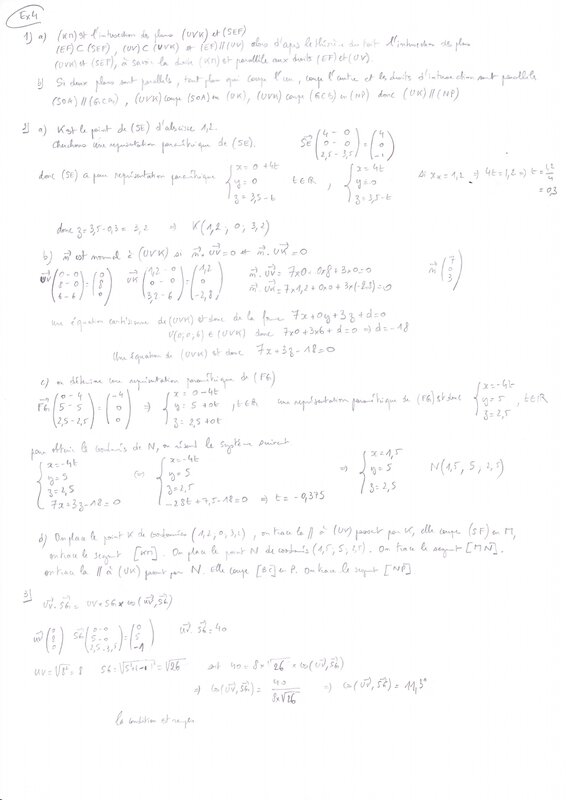 Ex 4
1) a) (KM) est l'intersection des plans (UVK) et (SEF)
(EF) ⊂ (SEF), (UV) ⊂ (UVK) et (EF) // (UV) alors d'après le théorème du toit l'intersection des plans
(UVK) et (SEF), à savoir la droite (KM) est parallèle aux droites (EF) et (UV).
b) Si deux plans sont parallèles, tout plan qui coupe l'un, coupe l'autre et les droites d'intersection sont parallèles
(UVK) coupe (SOA) en (UK), (UVK) coupe en (NP) donc (UK) // (NP)
2) a) K est le point de (SE) d'abscisse 1,2.
Cherchons une représentation paramétrique de (SE). SE (4 - 0 ; 0 - 0 ; 2,5 - 3,5) = (4 ; 0 ; -1)
donc (SE) a pour représentation paramétrique { x = 0 + 4t ; y = 0 ; z = 3,5 - t } t ∈ R, { x = 4t ; y = 0 ; z = 3,5 - t } x_K = 1,2 => 4t = 1,2 => t = 1,2/4 = 0,3
donc z = 3,5 - 0,3 = 3,2 => K (1,2, 0, 3,2)
b) n est normal à (UVK) si n . UV = 0 et n . UK = 0
UV (0 - 0 ; 8 - 0 ; 6 - 6) = (0 ; 8 ; 0) UK (1,2 - 0 ; 0 - 0 ; 3,2 - 6) = (1,2 ; 0 ; -2,8) n . UV = 7x0 - 0x8 + 3x0 = 0 n (7 ; 0 ; 3)
n . UK = 7x1,2 + 0x0 + 3x(-2,8) = 0
une équation cartésienne de (UVK) est donc de la forme 7x + 0y + 3z + d = 0
U(0, 0, 6) ∈ (UVK) donc 7x0 + 3x6 + d = 0 => d = -18
Une équation de (UVK) est donc 7x + 3z - 18 = 0
c) on détermine une représentation paramétrique de (FG)
FG (0 - 4 ; 5 - 5 ; 2,5 - 2,5) = (-4 ; 0 ; 0) => { x = 0 - 4t ; y = 5 + 0t ; z = 2,5 + 0t }, t ∈ R une représentation paramétrique de (FG) est donc { x = -4t ; y = 5 ; z = 2,5 }, t ∈ R
pour obtenir les coordonnées de N, on résout le système suivant
{ x = -4t ; y = 5 ; z = 2,5 ; 7x + 3z - 18 = 0 } <=> { x = -4t ; y = 5 ; z = 2,5 ; -28t + 7,5 - 18 = 0 => t = -0,375 } => { x = 1,5 ; y = 5 ; z = 2,5 } N (1,5, 5, 2,5)
d) On place le point K de coordonnées (1,2, 0, 3,2), on trace la // à (UV) passant par K, elle coupe (SF) en M,
on trace le segment [KM]. On place le point N de coordonnées (1,5, 5, 2,5). On trace le segment [MN].
on trace la // à (UK) passant par N. Elle coupe en P. On trace le segment [NP].
3)
UV . SG = UV x SG x cos(UV, SG)
UV (0 ; 8 ; 0) SG (0 - 0 ; 5 - 0 ; 2,5 - 3,5) = (0 ; 5 ; -1) UV . SG = 40
UV = √8² = 8 SG = √5²+(-1)² = √26 soit 40 = 8 x √26 x cos(UV, SG)
=> cos(UV, SG) = 40 / 8x√26 => (UV, SG) = 11,3°
la condition est